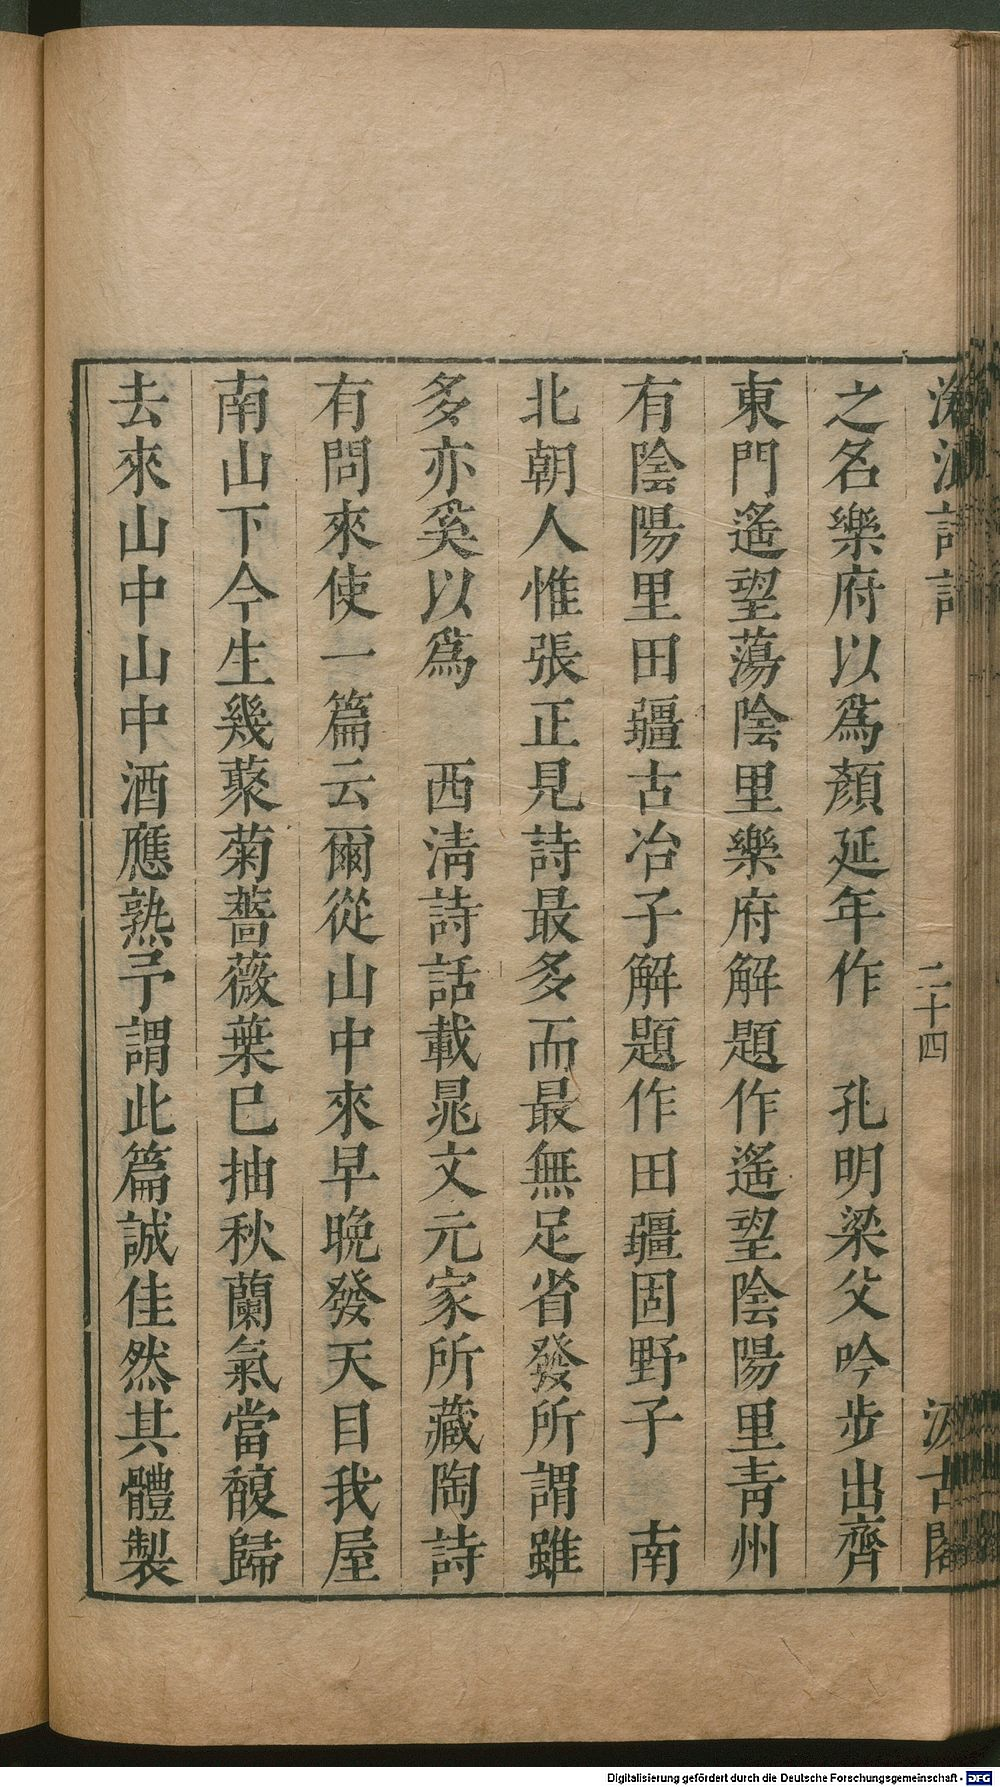 滄浪詩話
二十四
汲古閣
之名樂府以爲顏延年作　孔明梁父吟步出齊
東門遙望蕩陰里樂府解題作遙望陰陽里青州
有陰陽里田疆古冶子解題作田疆固野子　南
北朝人惟張正見詩最多而最無足省發所謂雖
多亦奚以爲　西清詩話載晁文元家所藏陶詩
有問來使一篇云爾從山中來早晚發天目我屋
南山下今生幾藂菊薔薇葉已抽秋蘭氣當馥歸
去來山中山中酒應熟予謂此篇誠佳然其體製
Digitalisierung gefördert durch die Deutsche Forschungsgemeinschaft - DFG